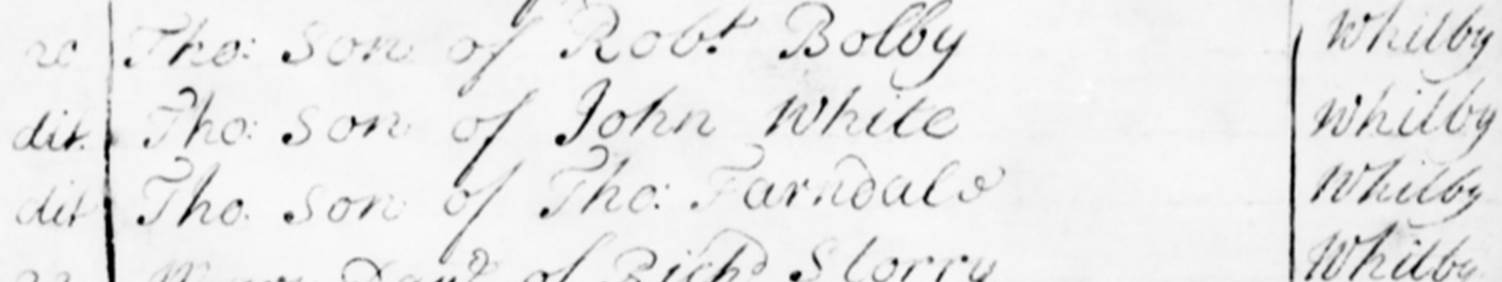 Tho: Son of Robt Bolby Whitby
dit Tho: Son of John White Whitby
dit Tho. Son of Tho: Farndale Whitby
Daur of Richd Storry Whitby